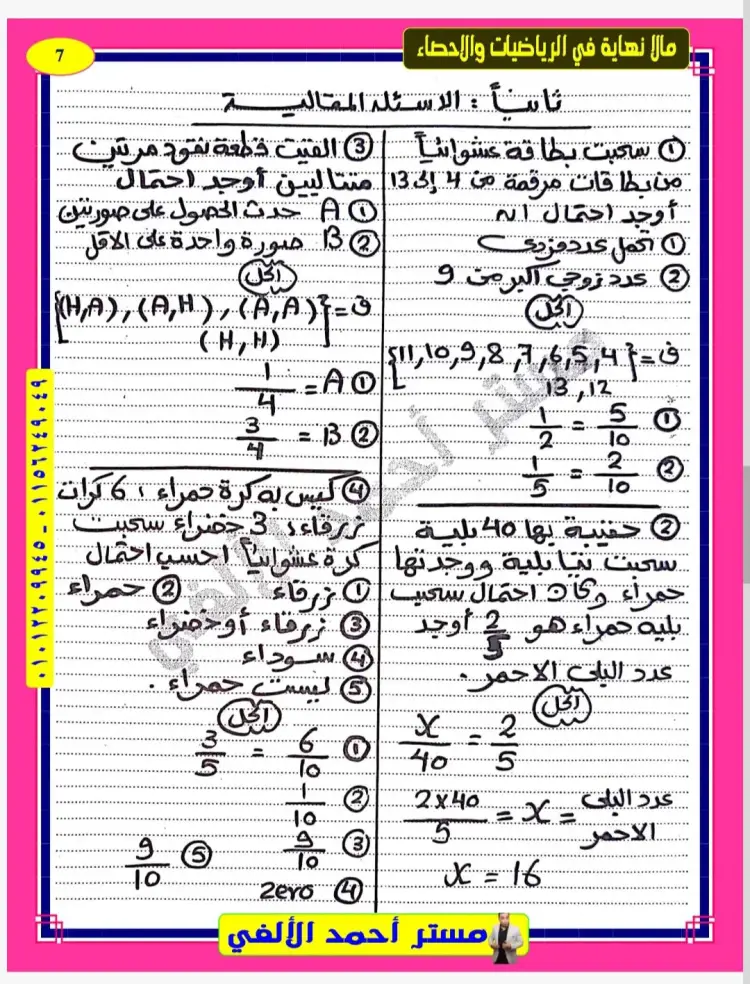 مالا نهاية في الرياضيات والاحصاء
7
ثانياً : الاسئلة المقالية
① سحبت بطاقة عشوائياً
من بطاقات مرقمة من 4 إلى 13
أوجد احتمال انه
① اكمل عدد فردى
② عدد زوجي اكبر من 9
الحل
ف = {4, 5, 6, 7, 8, 9, 10, 11
12, 13}
① 5/10 = 1/2
② 2/10 = 1/5
② حقيبة بها 40 بلية
سحبت نتيا بلية ووجدتها
حمراء وكان احتمال سحب
بليه حمراء هو 2/5 أوجد
عدد البلى الاحمر .
الحل
2/5 = x/40
عدد البلى الاحمر = x = 2×40/5
x = 16
③ القيت قطعة نقود مرتين
متتاليين أوجد احتمال
① A حدث الحصول على صورتين
② B صورة واحدة على الاقل
الحل
ف = {(A,A) , (A,H) , (H,A)
(H,H)}
① A = 1/4
② B = 3/4
④ كيس به كرة حمراء ، 6 كرات
زرقاء ، 3 خضراء سحبت
كرة عشوائياً احسب احتمال
① زرقاء ② حمراء
③ زرقاء أو خضراء
④ سوداء
⑤ ليست حمراء .
الحل
① 6/10 = 3/5
② 1/10
③ 9/10 ⑤ 9/10
④ zero
مستر أحمد الألفي
٠١٠١٢٢٠٩٩٤٥ - ٠١١٥٦٢٤٩٠٤٩
مستر أحمد الألفي